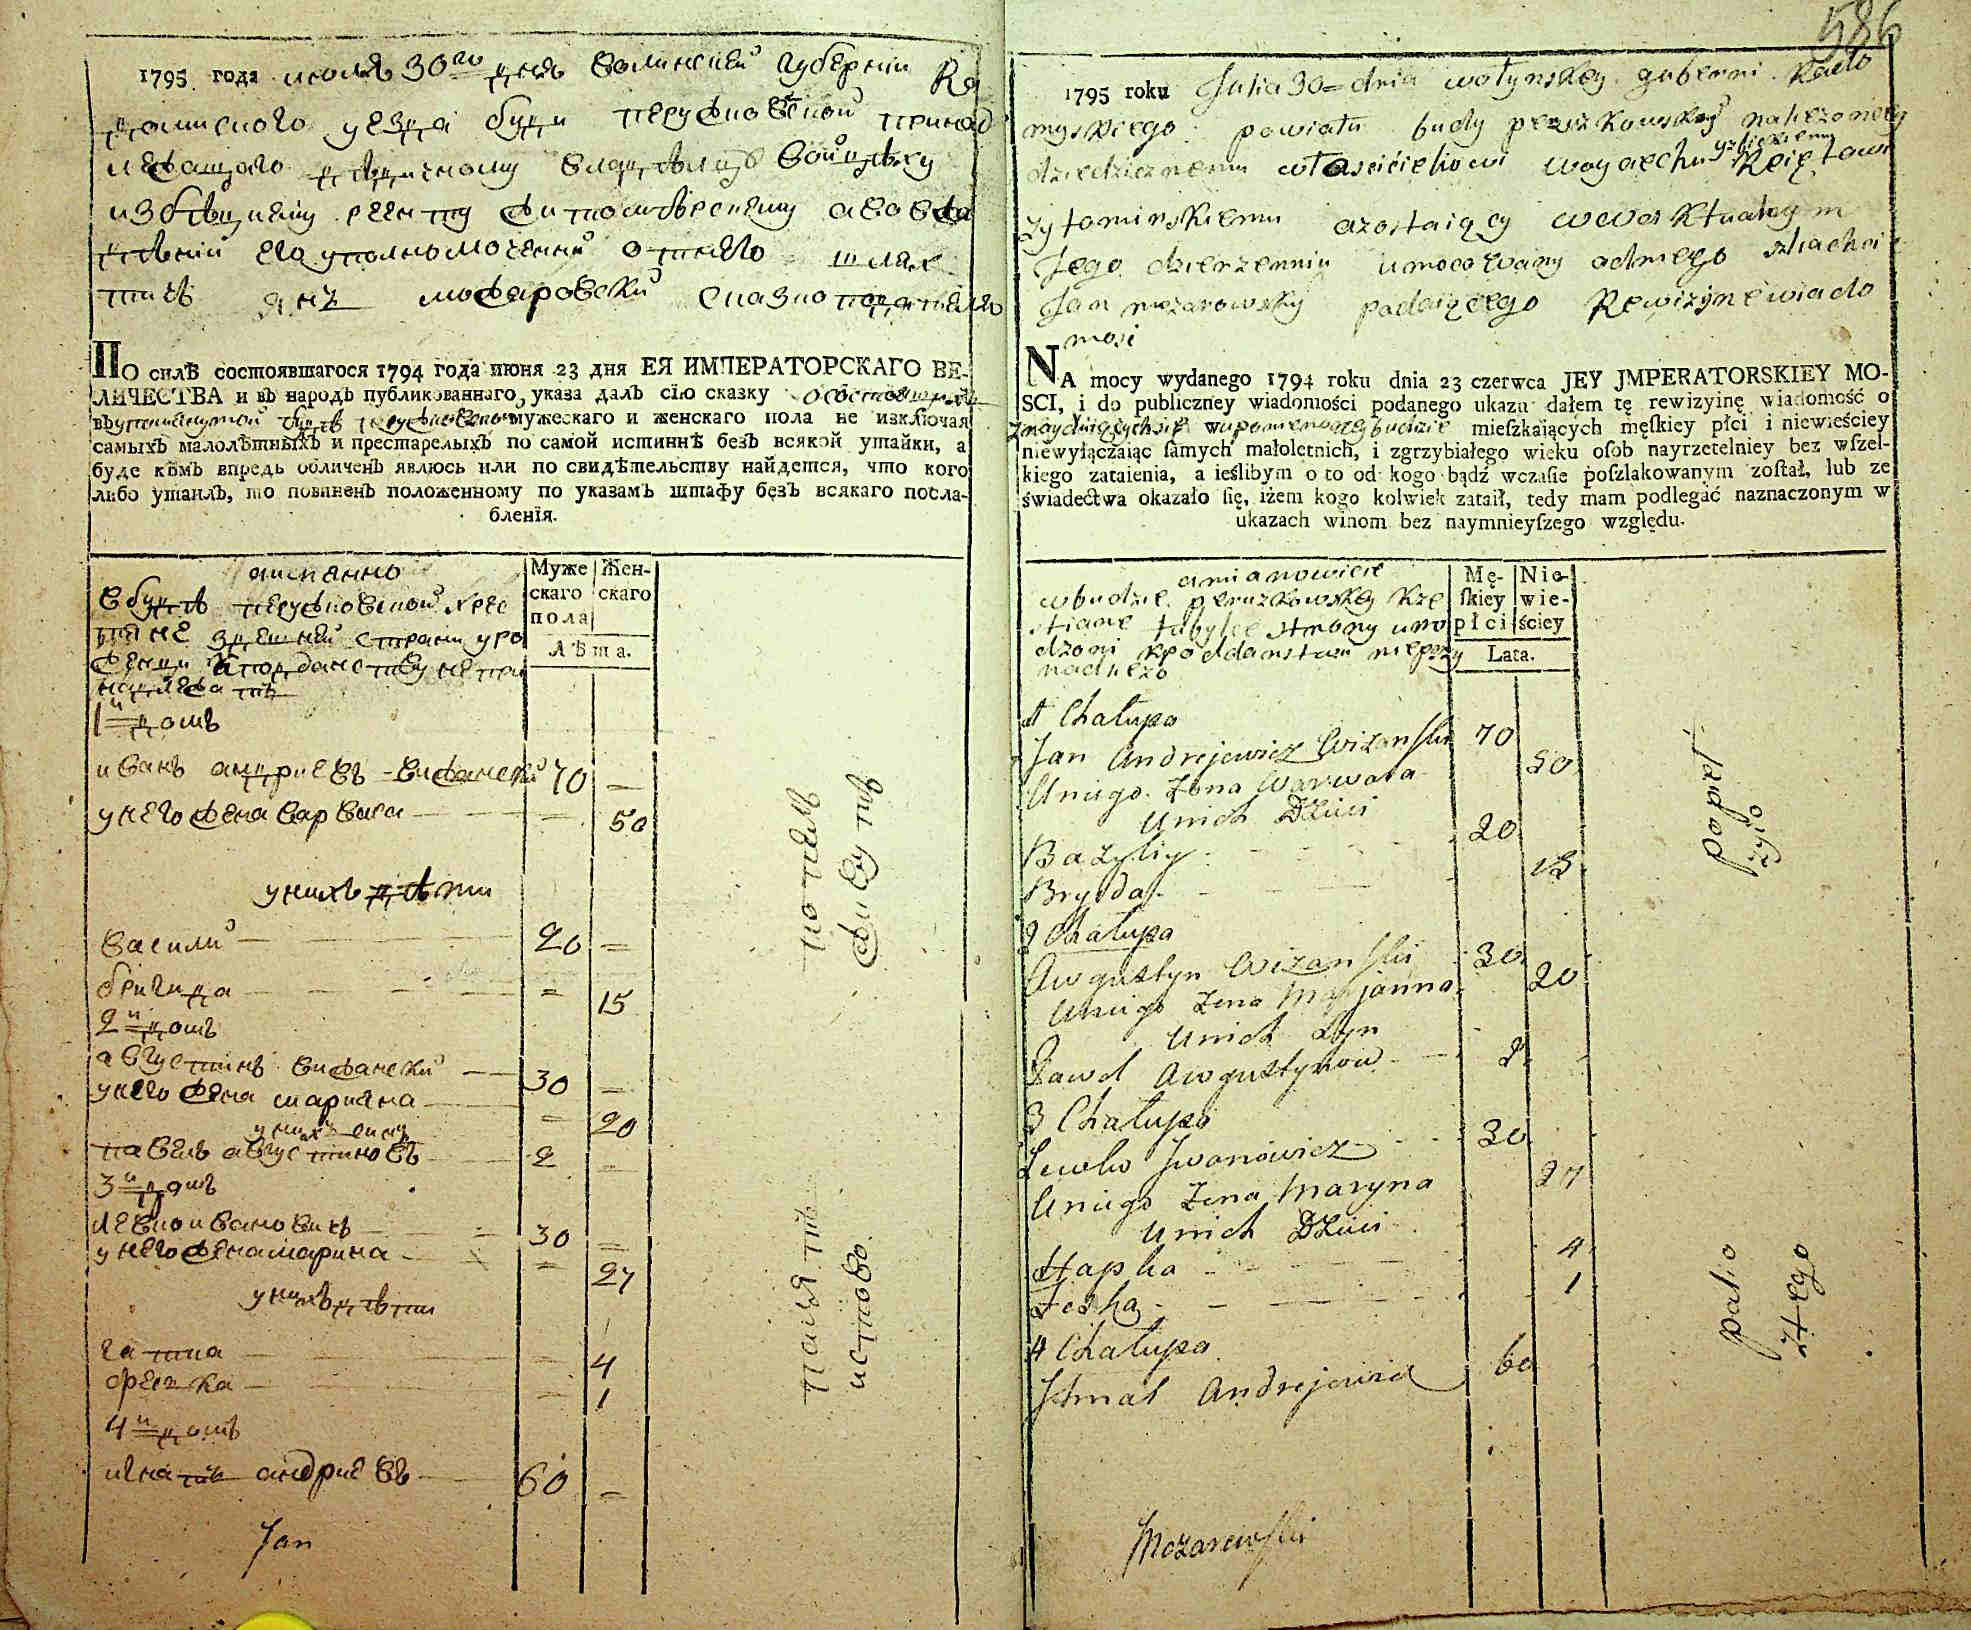 1795 года июля 30го дня волинской губернии Ра
домисского уезда буди перужковской принад
лежащаго дедичному владелцу войцеху
изблицкему реенту житомирскему а во вла
дении его уполномоченный отнего шлях
тичь янъ можаровский сказко подателю
ПО силѢ состоявшагося 1794 года июня 23 дня ЕЯ ИМПЕРАТОРСКАГО ВЕ-
ЛИЧЕСТВА и въ народъ публикованнаго указа далъ сїю сказку о состоящихъ
въ упомянутой будѣ мужескаго и женскаго пола не изключая
самыхъ малолѣтныхъ и престарелыхъ по самой истиннѣ безъ всякой утайки, а
буде кѣмъ впредь обличенъ явлюсь или по свидѣтельству найдется, что кого
либо утаилъ, то повиненъ положенному по указамъ штафу безъ всякаго посла-
бленїя.
а имянно
в будѣ перужковской хрес
тяне здешней страни уро
женци к подданству не при
надлежатъ
Муже
скаго
пола
Жен-
скаго
Лѣта.
1й домъ
иванъ андриевъ вижански 70 —
у него жена варвара — = 50
у нихъ дѣти
василий — 20 =
бригида — = 15
2й домъ
августинъ вижански — 30 =
у него жена марияна — = 20
у нихъ синъ
павелъ августиновъ — 2 =
3й домъ
левко ивановичъ — 30 =
у него жена марина — = 27
у нихъ дѣти
гапка — = 4
феска — = 1
4й домъ
игнатъ андриевъ — 60 =
потомъ
живутъ
Jan
586
1795 roku Julia 30 = dnia wołynskey guberni Rado
myskiego powiatu budy peruzkowskey należoncey
dziedzicznemu włascicieliowi woyciechu yzblickiemu Reiętowi
zytomirskiemu azostaiący wewos ktualnym
Jego dzierzenniu umocowany odniego szliachcic
Jan mozarowsky podaiącego Rewizyine wiado
mosci
NA mocy wydanego 1794 roku dnia 23 czerwca JEY JMPERATORSKIEY MO-
SCI, i do publiczney wiadomości podanego ukazu dałem tę rewizyinę wiadomość o
znaydujących się w upomienioney budzie mieſzkaiących męſkiey płci i niewieściey
niewyłączaiąc ſamych małoletnich, i zgrzybiałego wieku oſob nayrzetelniey bez wſzel-
kiego zataienia, a ieślibym o to od kogo bądź wczaſie poſzlakowanym zoſtał, lub ze
świadectwa okazało ſię, iżem kogo kolwiek zataił, tedy mam podlegać naznaczonym w
ukazach winom bez naymnieyſzego względu.
amianowicie
wbudzie peruzkowskey Krze
stiane tutbylce strony uro
dzoni kpoddanstwu nieprzy
nadlezo
Mę-
ſkiey
płci
Nie-
wie-
ściey
Lata.
1 Chałupa
Jan Andrejewicz Wizanski 70
Uniego Zona Warwara 50
Unich Dzieci
Bazyliy 20
Brygda 15
2 Chałupa
Awgustyn Wizanski 30
Uniego Zona Marjanna 20
Unich Syn
Pawel Awgustynow 2
3 Chałupa
Lewko Jwanowicz 30
Uniego Zona Maryna 27
Unich Dzieci
Hapka 4
Feska 1
4 Chałupa
Jhnat Andrejewicz 60
Mozarowski